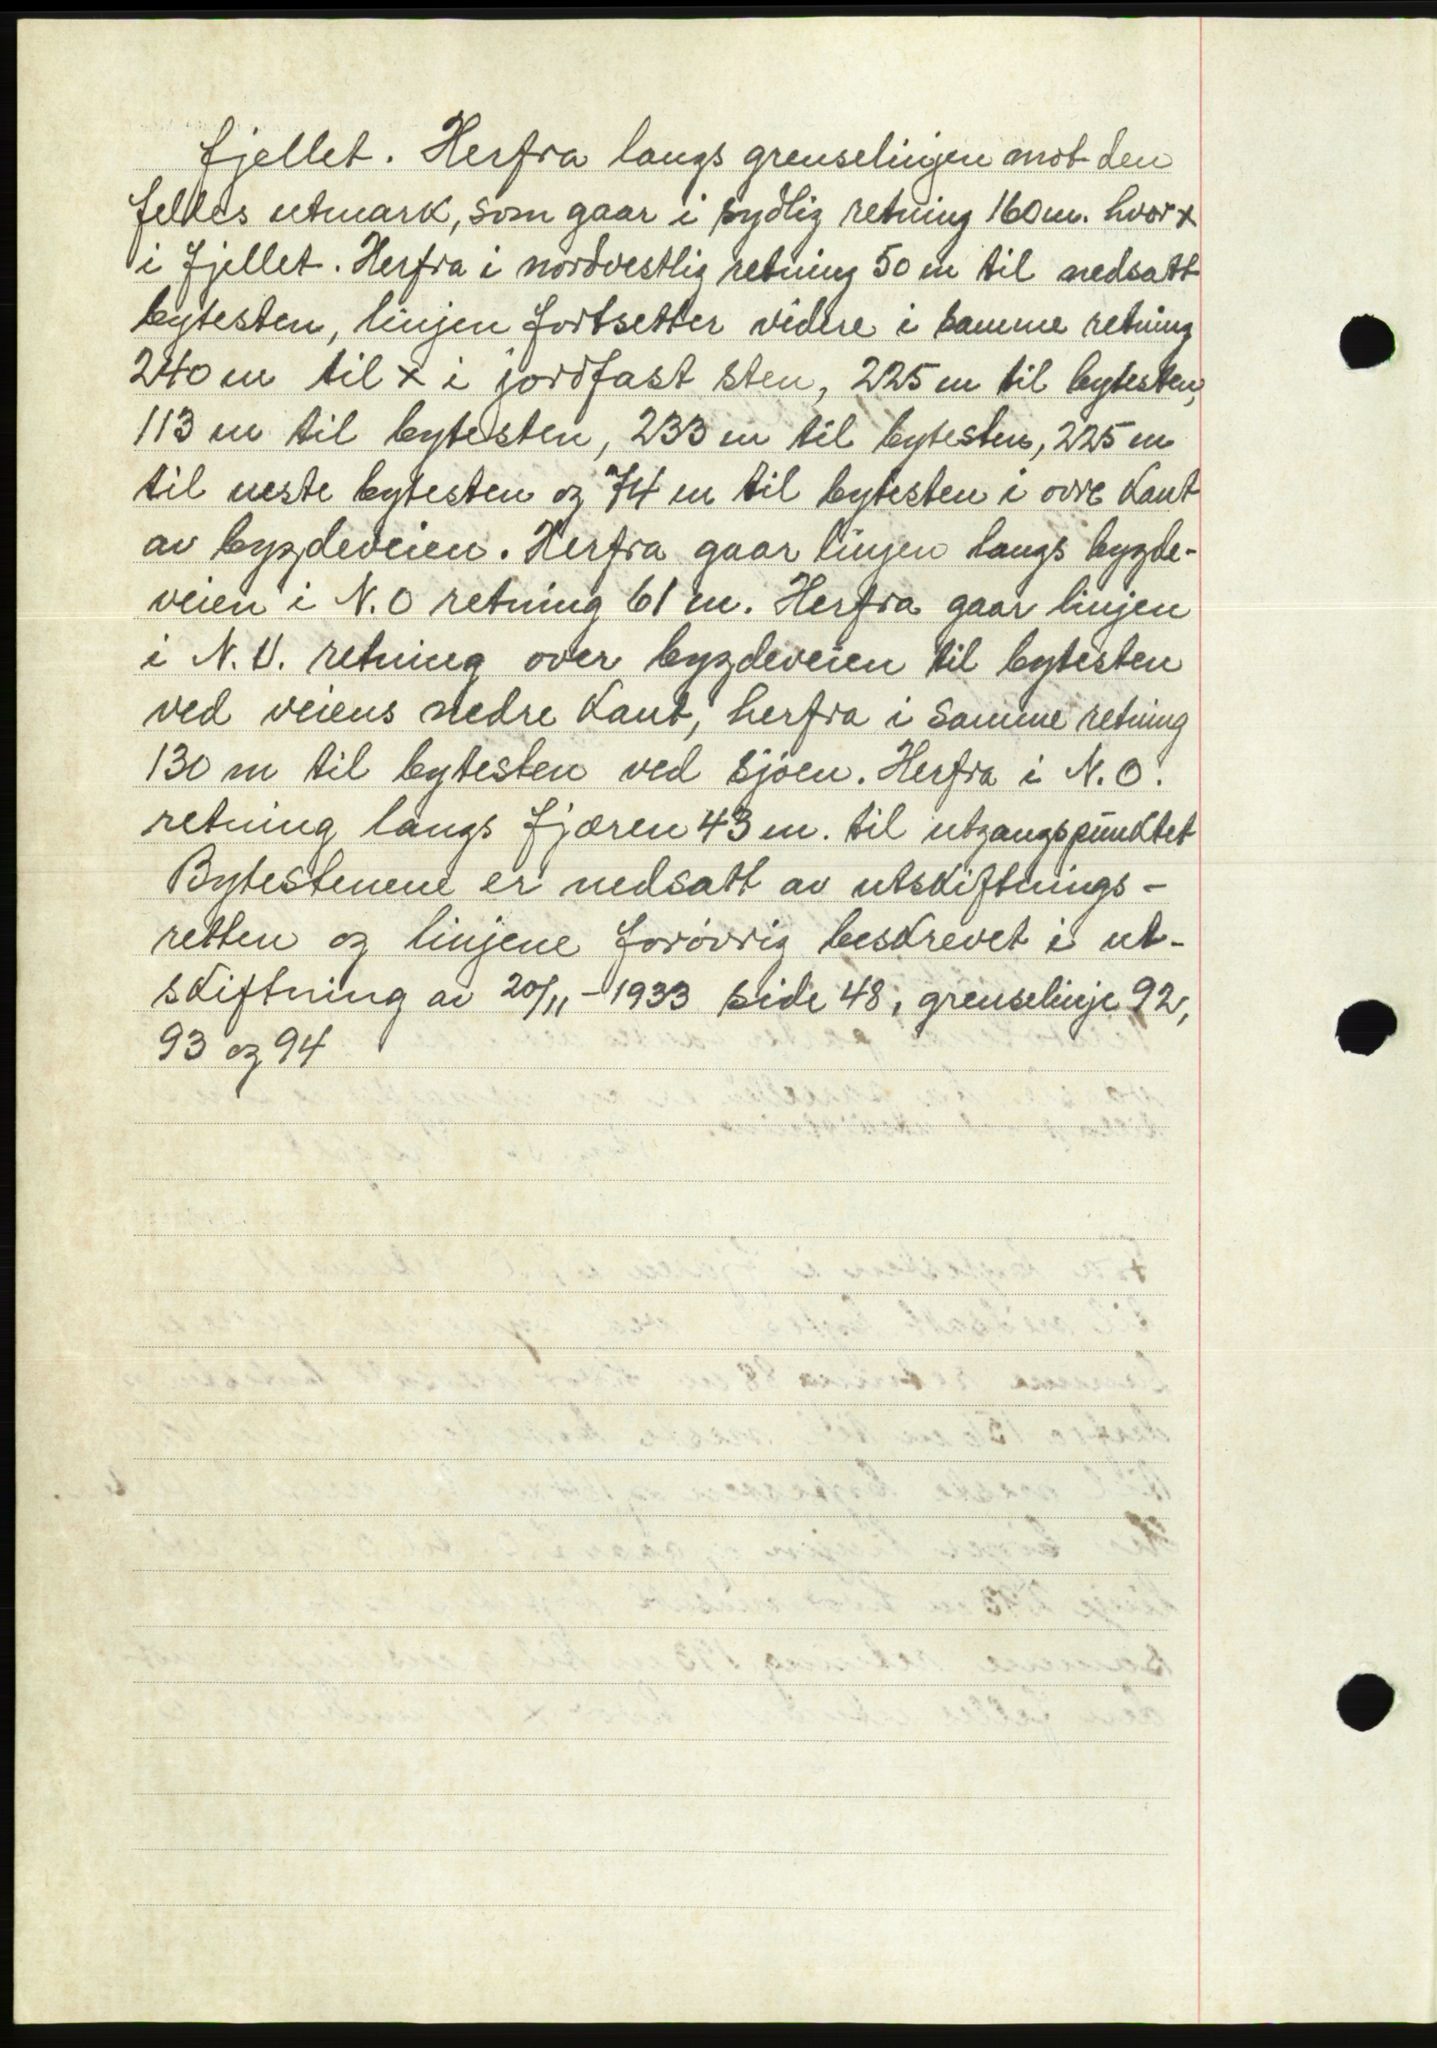 fjellet. Herfra langs grenselinjen mot den
felles utmark, som gaar i sydlig retning 160 m. hvor x
i fjellet. Herfra i nordvestlig retning 50 m til nedsatt
bytesten, linjen fortsetter videre i samme retning
240 m til x i jordfast sten, 225 m til bytesten,
113 m til bytesten, 233 m til bytesten, 225 m
til neste bytesten og 74 m til bytesten i øvre kant
av bygdeveien. Herfra gaar linjen langs bygde-
veien i N.O retning 61 m. Herfra gaar linjen
i N.V. retning over bygdeveien til bytesten
ved veiens nedre kant, herfra i samme retning
130 m til bytesten ved sjøen. Herfra i N.O.
retning langs fjæren 43 m. til utgangspunktet
Bytestenene er nedsatt av utskiftnings-
retten og linjene forøvrig beskrevet i ut-
skiftning av 20/11 - 1933 side 48, grenselinje 92,
93 og 94